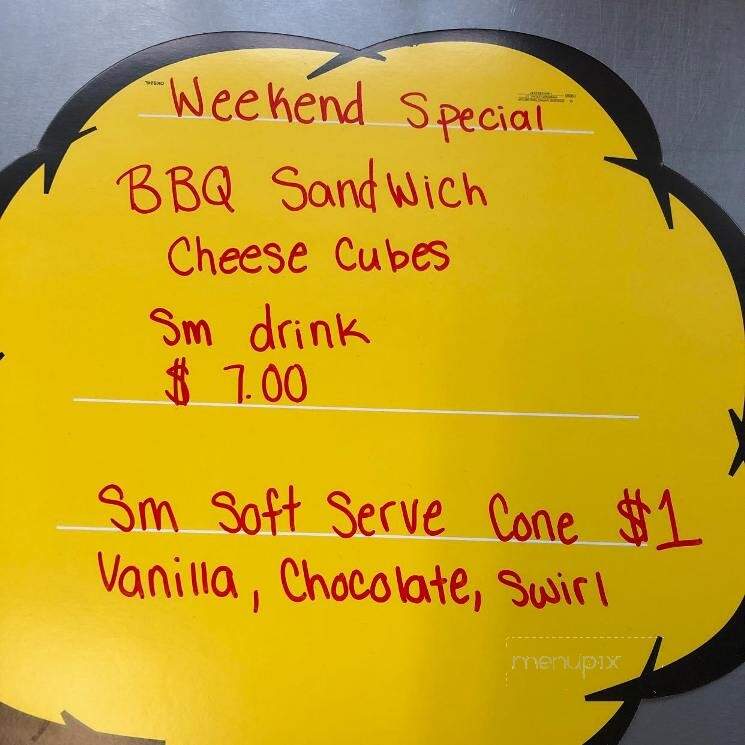 Weekend Special
BBQ Sandwich
Cheese Cubes
Sm drink
$ 7.00
Sm Soft Serve Cone $1
Vanilla, Chocolate, Swirl
menupix